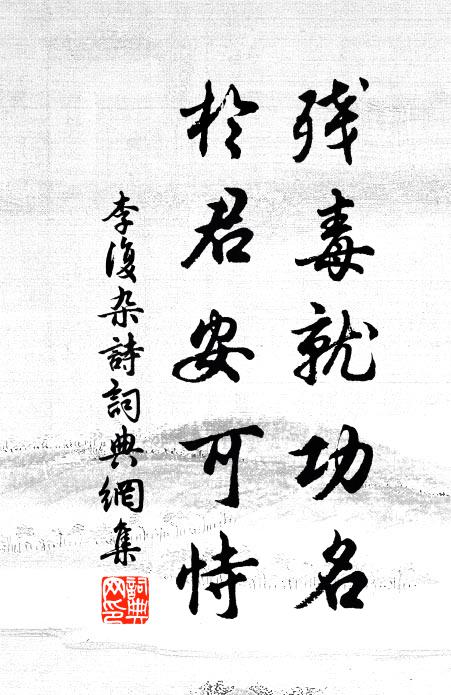 残毒就功名
於君安可恃
李復杂詩詞典網集
詞典網印